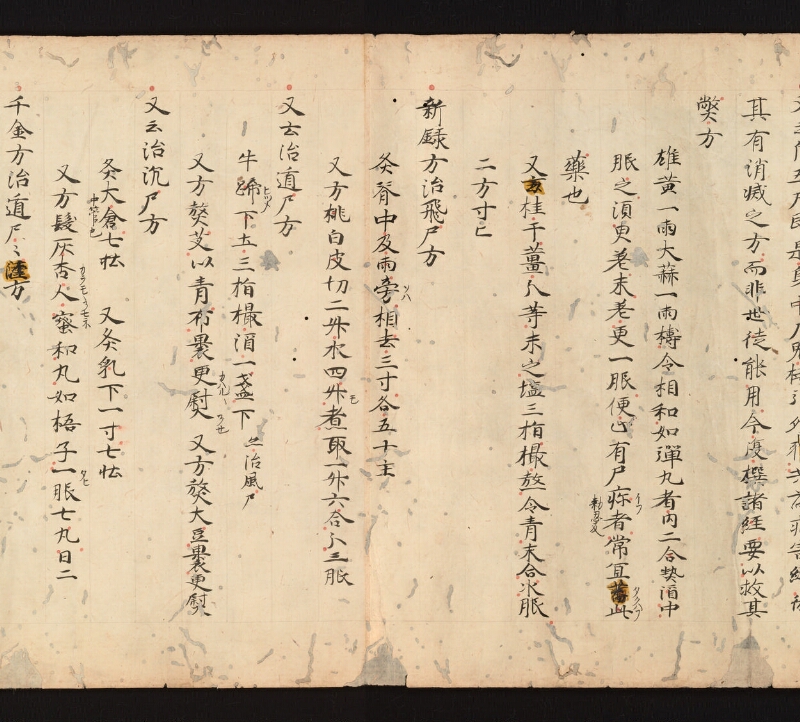 其有消滅之方而非世徒能用今復撰諸経要以救其
弊方
雄黄一兩大蒜一兩搏令相和如弾丸者内二合熱酒中
服之須臾差未差更一服便止有尸疹者常宜蓄此
藥也
又方桂干薑分等末之塩三指撮熬令青末合水服
二方寸匕
新録方治飛尸方
灸脊中及兩旁相去三寸各五十主
又方桃白皮切二升水四升煮取一升六合分三服
又云治遁尸方
牛蹄下土三指撮酒一盞下 治風尸
又方熬艾以青布裹更熨 又方熬大豆裹更熨
又云治沉尸方
灸大倉七壮 又灸乳下一寸七壮
又方髮灰杏人蜜和丸如梧子一服七丸日二
千金方治遁尸々湮方